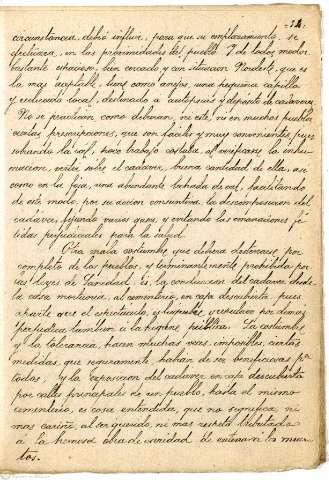 54.
circunstancia, debió influir, para que su emplazamiento, se
efectuara, en las proximidades del pueblo. Y de todos modos
bastante espacioso, bien cercado y con situación Nordeste, que es
la más aceptable, tiene como anejos, una pequeña capilla
y reducido local, destinado a autopsias y deposito de cadáveres.
No se practican como debieran, ni este, ni en muchos pueblos
ciertas prescripciones, que son fáciles y muy convenientes, pues
sobrando la cal, poco trabajo costaba al verificarse la inhu-
mación, verter sobre el cadáver, buena cantidad de ella, así
como en la fosa, una abundante lechada de cal, facilitando
de este modo, por su acción consuntiva la descomposición del
cadáver, fijando varios gases, y evitando las emanaciones fé-
tidas perjudiciales para la salud.
Otra mala costumbre que debiera desterrarse por
completo de los pueblos, y terminantemente prohibida por
las leyes de Sanidad, es, la conducción del cadáver desde
la casa mortuoria, al cementerio, en caja descubierta, pues
aparte que el espectáculo, es
perjudica tambien a la higiene pública. La costumbre
y la tolerancia, hacen muchas veces, imposibles, ciertas
medidas, que seguramente, habían de ser beneficiosas pa
todos, y la exposición del cadáver en caja descubierta
por calles principales de un pueblo, hasta el mismo
cementerio, es cosa entendida, que no significa, ni
mas cariño al ser querido, ni mas respeto tributado
a la hermosa obra de caridad de enterrar los muer-
tos.